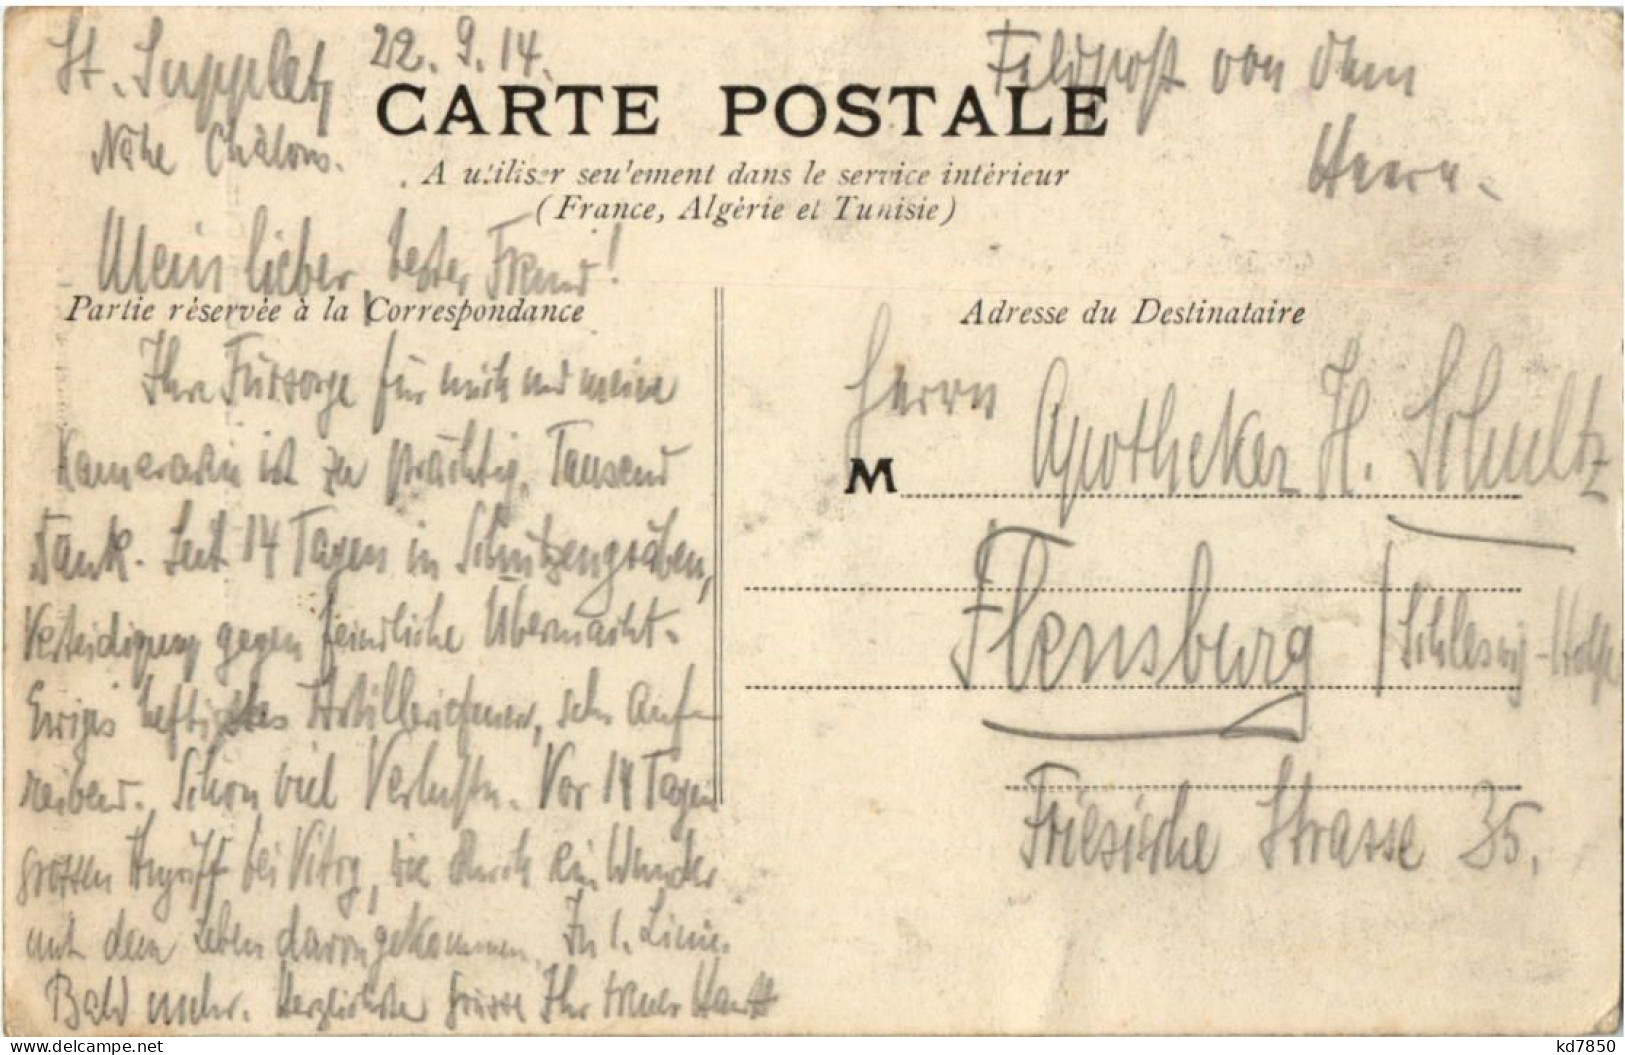 St. Supplet, 22.9.14.
Nähe Châlons.
Feldpost von dem
Heere.
CARTE POSTALE
A utiliser seulement dans le service intérieur
(France, Algérie et Tunisie)
Mein lieber, bester Freund!
Partie réservée à la Correspondance
Ihre Fürsorge für mich und meine
Kameraden ist zu prächtig. Tausend
Dank. Seit 14 Tagen in Schützengräben,
Verteidigung gegen feindliche Übermacht.
Ewiges heftigstes Artilleriefeuer, sehr auf-
reibend. Schon viel Verluste. Vor 14 Tagen
grossen Angriff bei Vitry, wie durch ein Wunder
mit dem Leben davongekommen. In 1. Linie.
Bald mehr. Herzlichste Grüsse Ihr treuer
Adresse du Destinataire
Herrn
M Apotheker H. Schultz
Flensburg / Schleswig-Holst
Friesische Strasse 35.
delcampe.net
kd7850